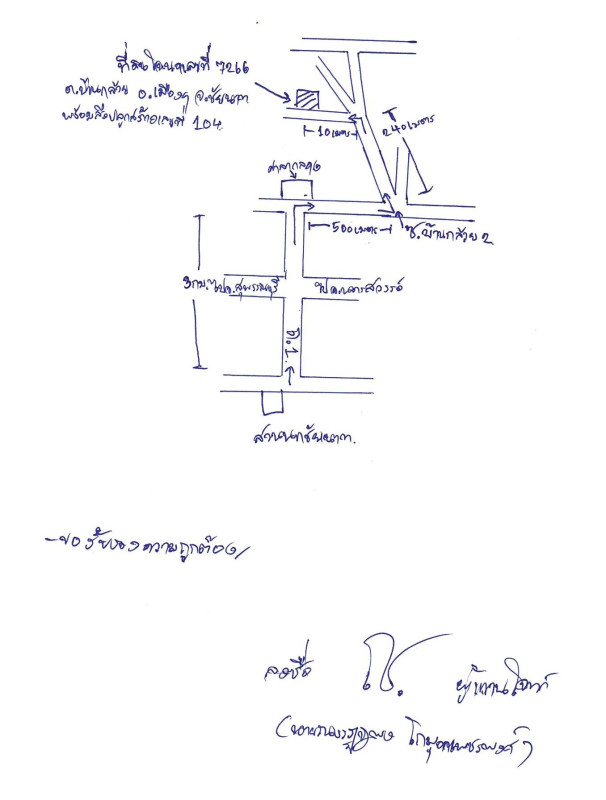 ที่ดินโฉนดเลขที่ 7266
ต.บ้านกล้วย อ.เมืองฯ จ.ชัยนาท
พร้อมสิ่งปลูกสร้างเลขที่ 104
10 เมตร
240 เมตร
ศาลากลาง
500 เมตร
ซ.บ้านกล้วย 2
3 กม.
ไปจ.สุพรรณบุรี
ไปจ.นครสวรรค์
ถ.1
สวนนกชัยนาท.
- ขอรับรองความถูกต้อง
ลงชื่อ
ผู้แทนโจทก์